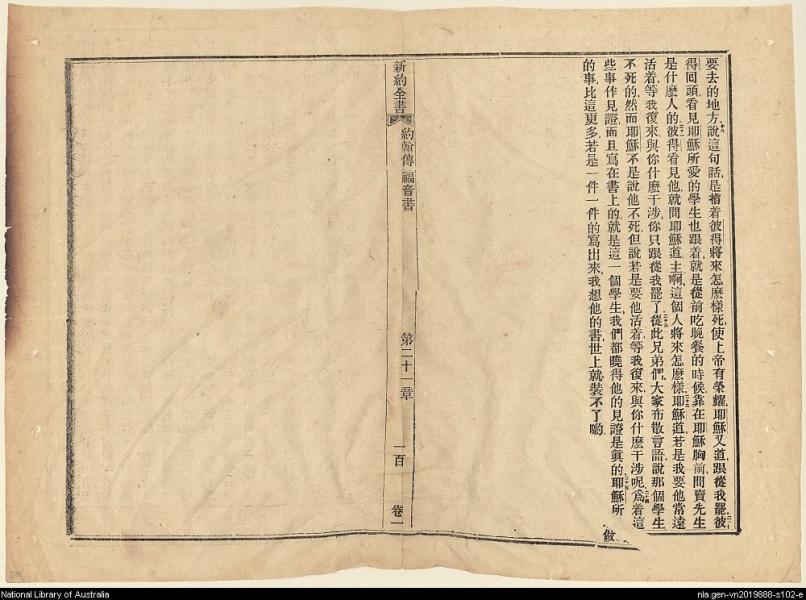 要去的地方十九說這句話是指着彼得將來怎麽樣死使上帝有榮耀耶穌又道跟從我罷二十彼
得回頭看見耶穌所愛的學生也跟着就是從前吃晚餐的時候靠在耶穌胸前問賣先生
是什麽人的二一彼得看見他就問耶穌道主啊這個人將來怎麽樣二二耶穌道若是我要他常遠
活着等我復來與你什麽干涉你只跟從我罷了二十三從此兄弟們大家布散言語說那個學生
不死的然而耶穌不是說他不死但說若是要他活着等我復來與你什麽干涉呢二十四爲着這
些事作見證而且寫在書上的就是這一個學生我們都曉得他的見證是眞的二十五耶穌所做
的事比這更多若是一件一件的寫出來我想他的書世上就裝不了喲
新約全書 約翰傳福音書 第二十一章 一百 卷一
National Library of Australia
nla.gen-vn2019888-s102-e